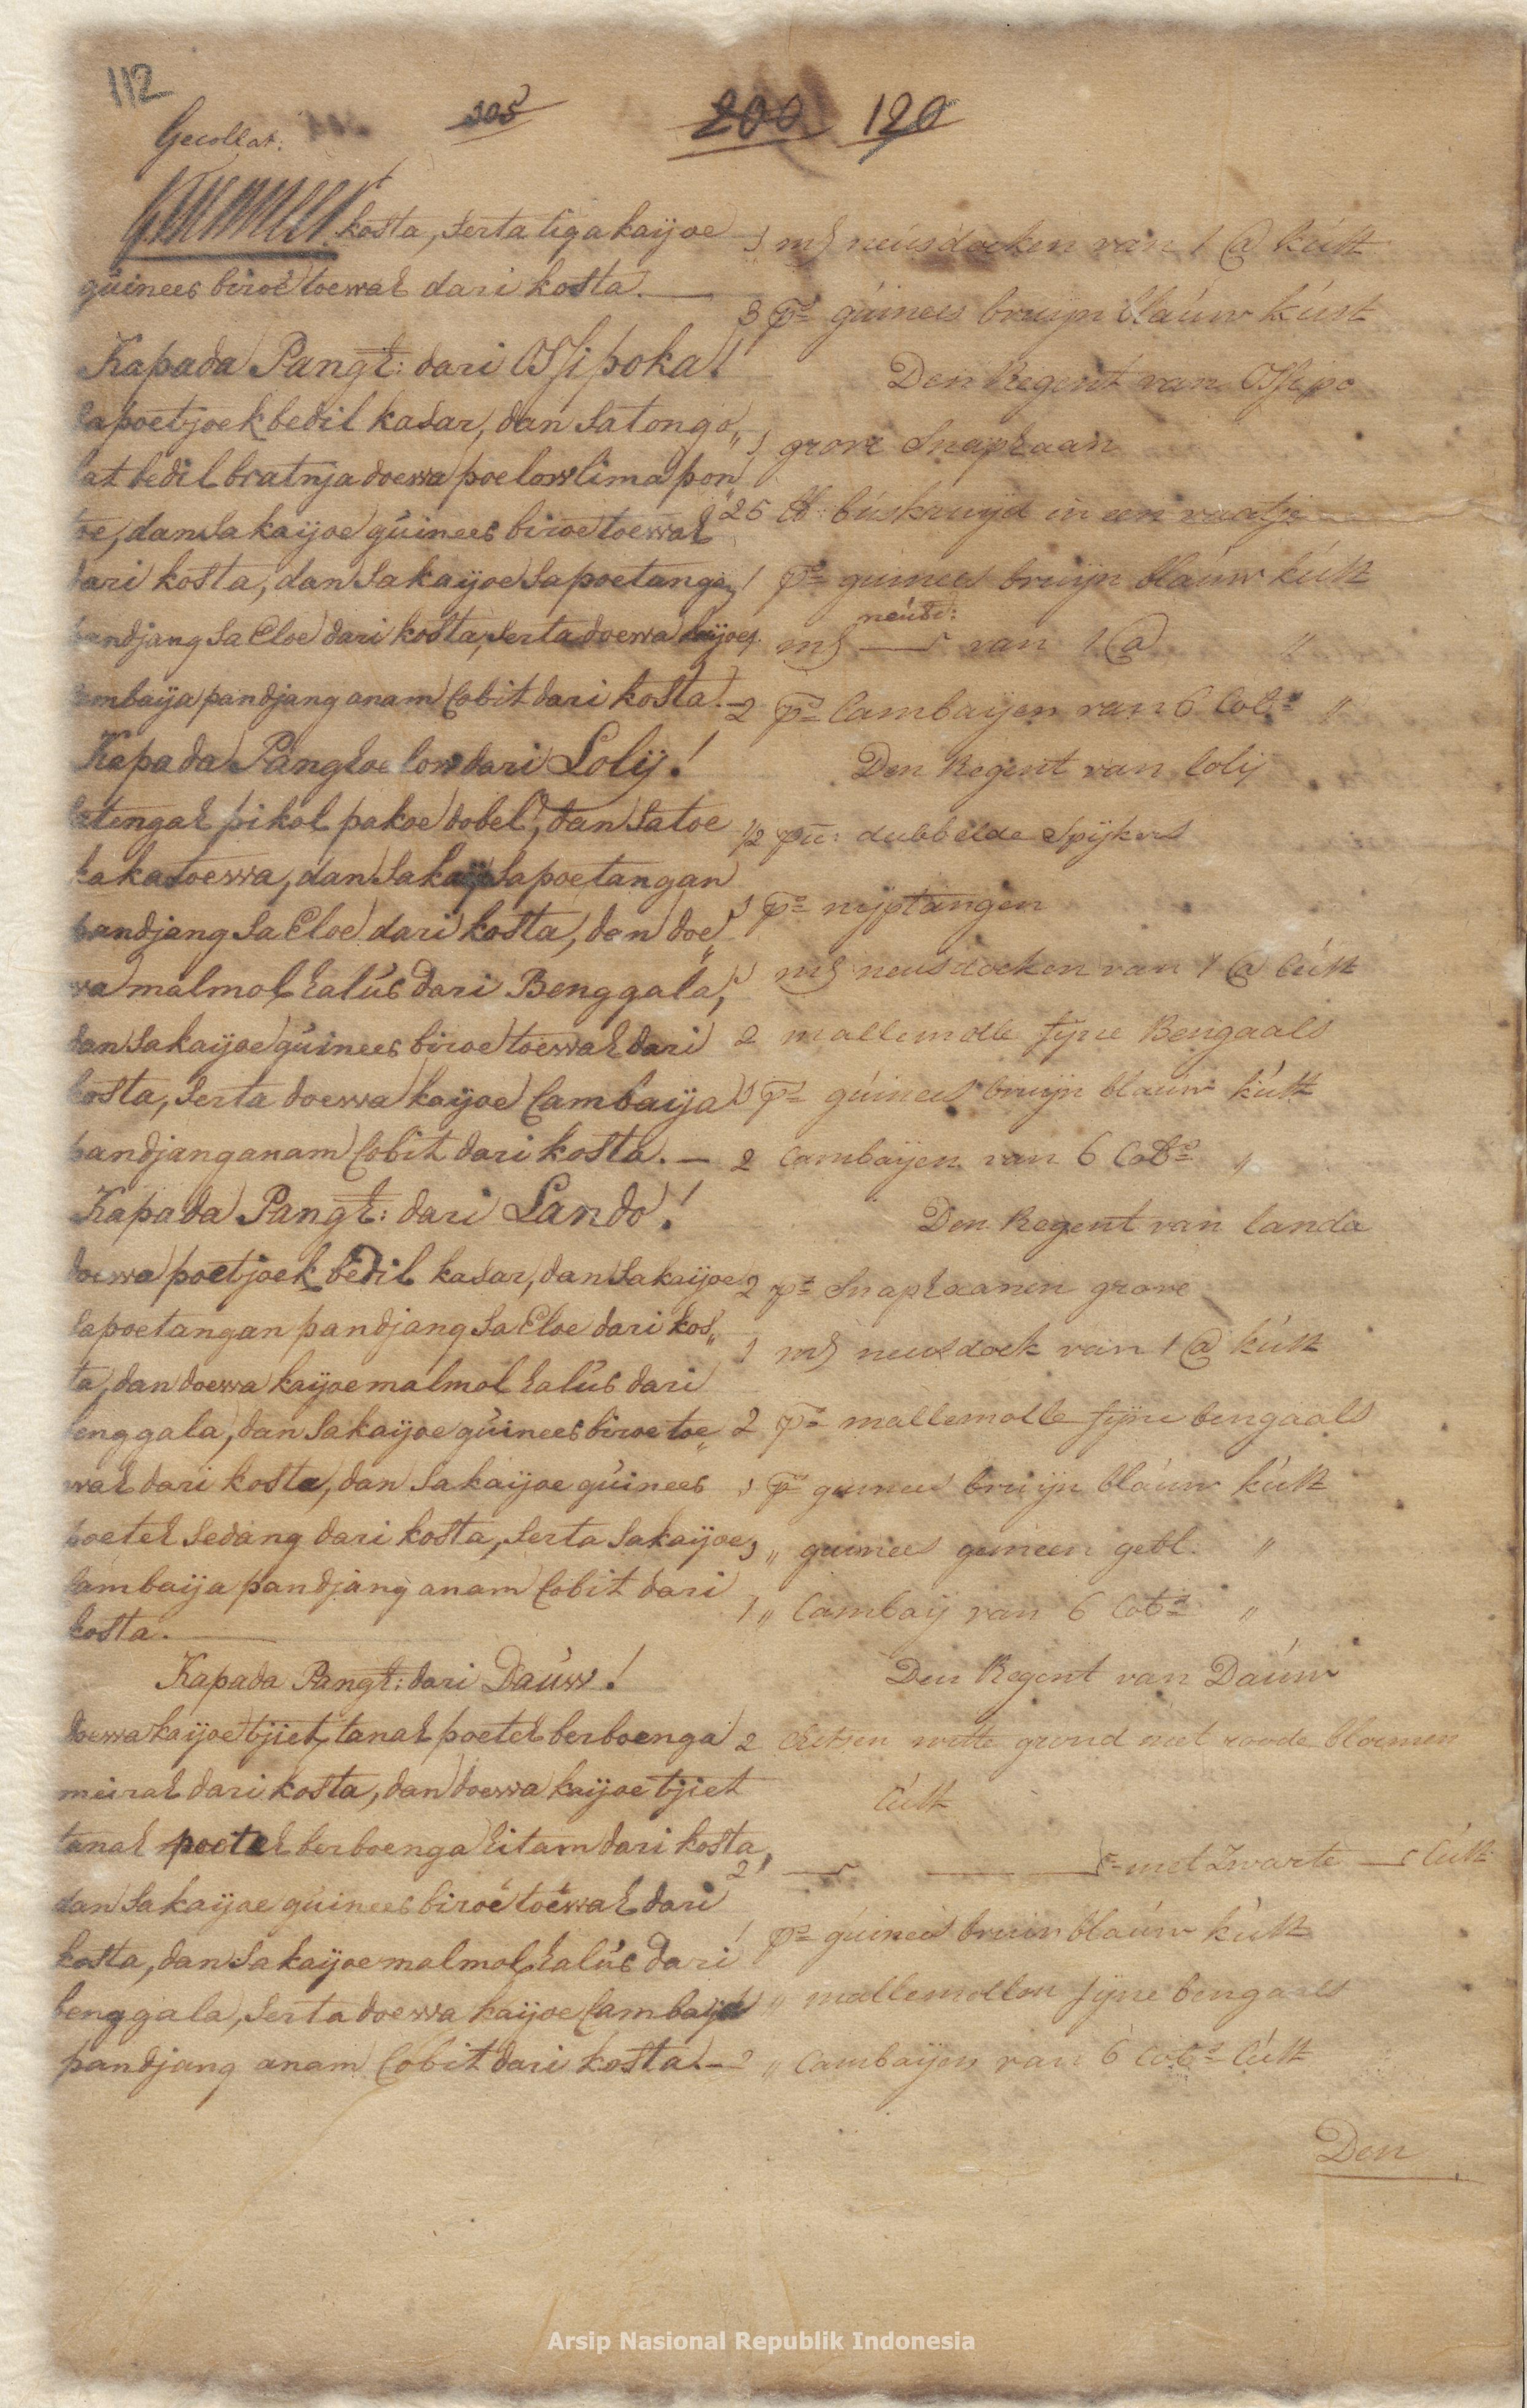 112
305
200 120
Gecollat:
kosta, serta tiga kaijoe
guinees biroe toewah dari kosta.
Kapada Pangh: dari Ossipoka!
sapoetjoek bedil kasar, dan satongo„
lat bedil bratnja doewa poelow lima pon„
toe, dan sakaijoe guinees biroe toewah
dari kosta, dan sakaijoe sapoetangan
pandjang sa Eloe dari kosta, serta doewa kaijoe
Cambaija pandjang anam Cobit dari kosta.
Kapada Panghoelow dari Lolij!
satengah pikol pakoe dobel, dan satoe
kakatoewa, dan sakaijoe sapoetangan
pandjang sa Eloe dari kosta, dan doe„
wa malmol halus dari Benggala,
dan sakaijoe guinees biroe toewah dari
kosta, serta doewa kaijoe Cambaija
pandjang anam Cobit dari kosta.
Kapada Pangh: dari Lando!
doewa poetjoek bedil kasar, dan sakaijoe
sapoetangan pandjang sa Eloe dari kos„
ta, dan doewa kaijoe malmol halus dari
benggala, dan sakaijoe guinees biroe toe„
wah dari kosta, dan sakaijoe guinees
poeteh sedang dari kosta, serta sakaijoe
Cambaija pandjang anam Cobit dari
kosta.
Kapada Pangh: dari Dauw!
doewa kaijoe tjiet, tanah poeteh berboenga
meirah dari kosta, dan doewa kaijoe tjiet
tanah poeteh berboenga hitam dari kosta,
dan sakaijoe guinees biroe toewah dari
kosta, dan sakaijoe malmol halus dari
benggala, serta doewa kaijoe Cambaija
pandjang anam Cobit dari kosta.
1 neusdoeken van 1 @ kust
3 ps guinees bruijn blauw kust
Den Regent van Ossipo
1 grove Snaphaan
25 lb: buskruijd in een vaatje
1 ps guinees bruijn blauw kust
neusd:
van 1 @ „
2 ps Cambaijen van 6 Cobs „
Den Regent van Lolij
1/2 dubbelde Spijkers
1 ps nijptangen
1 neusdoeken van 1 @ Cust
2 mallemolle fijne Bengaals
1 ps guinees bruijn blauw kust
2 Cambaijen van 6 Cobs „
Den Regent van Landa
2 ps Snaphaanen grove
1 neusdoek van 1 @ kust
2 ps mallemolle fijne bengaals
1 ps guinees bruijn blauw kust
1 „ guinees gemeen gebl. „
1 „ Cambaij van 6 Cobs „
Den Regent van Dauw
2 Chitsen witte grond met roode bloemen
Cust
2 met Zwarte Cust
1 ps guinees bruin blauw kust
1 „ mallemollen fijne bengaals
2 „ Cambaijen van 6 Cobs Cust
Den
Arsip Nasional Republik Indonesia